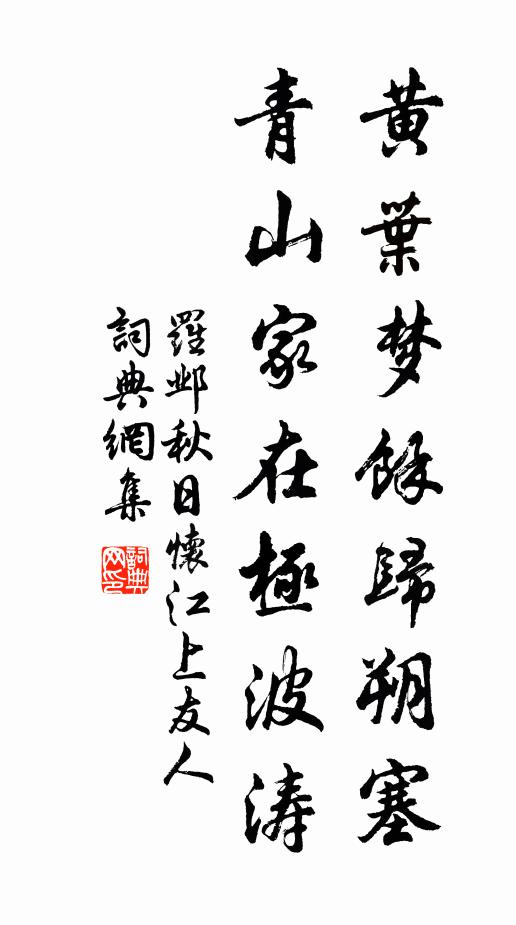 黃葉梦餘歸朔塞
青山家在極波涛
羅邺秋日懷江上友人
詞典網集
詞典网印